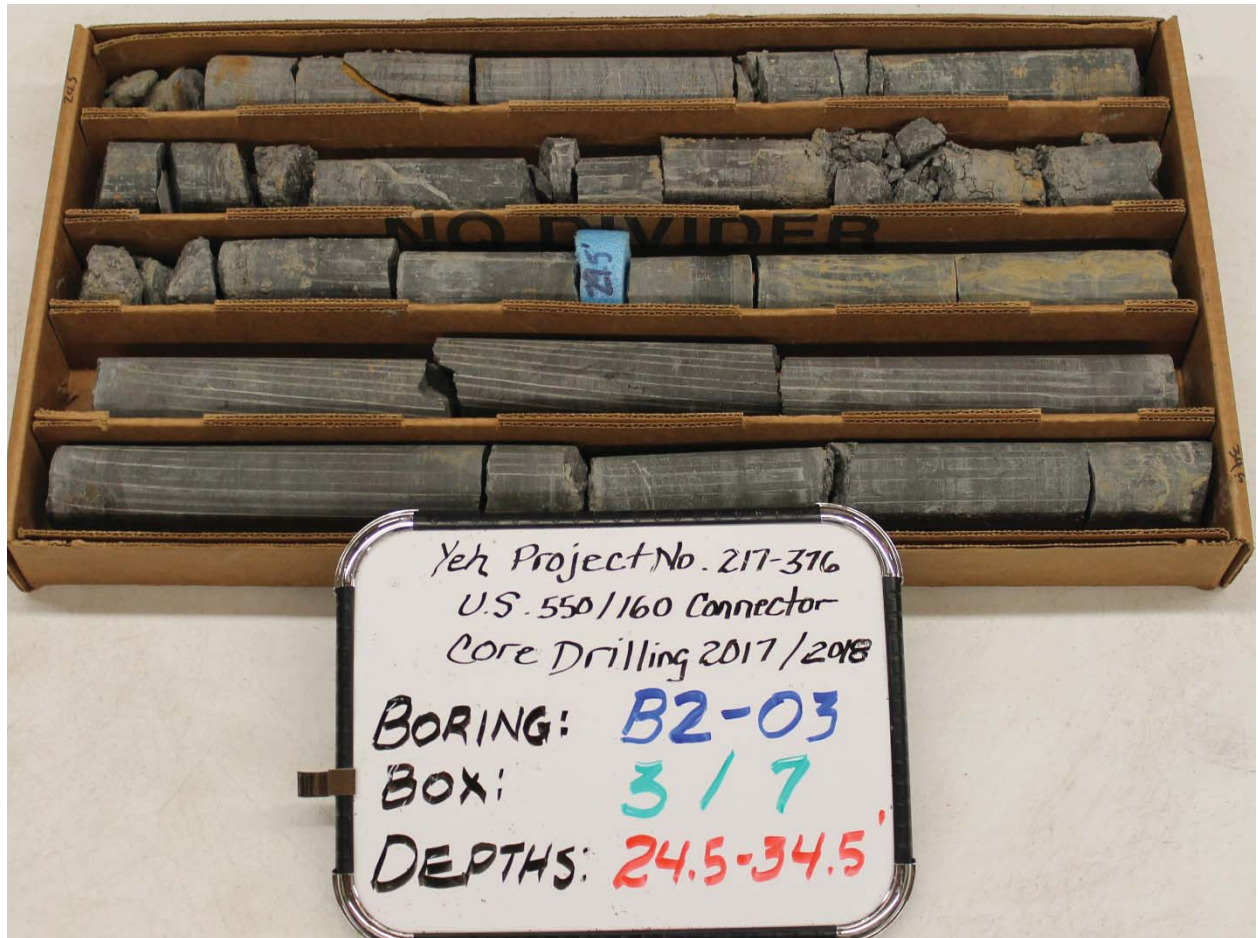 24.5
NO DIVIDER
29.5'
34.5
Yeh Project No. 217-376
U.S. 550/160 Connector
Core Drilling 2017/2018
BORING: B2-03
BOX: 3/7
DEPTHS: 24.5-34.5'